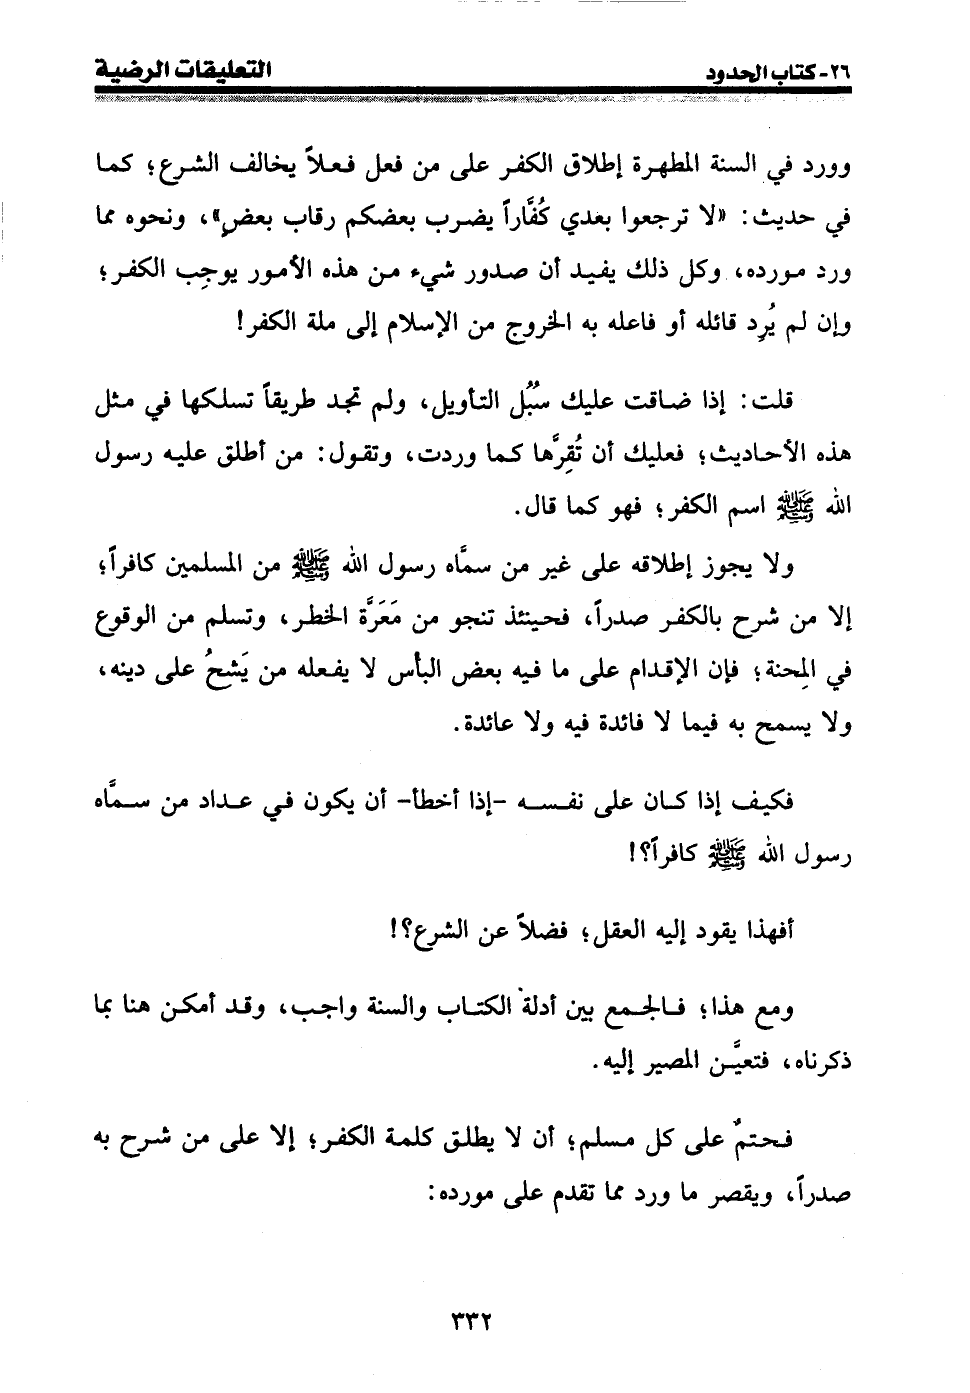 ٢٦- كتاب الحدود
التعليقات الرضية
وورد في السنة المطهرة إطلاق الكفر على من فعل فعلاً يخالف الشرع؛ كما
في حديث: «لا ترجعوا بعدي كُفَّاراً يضرب بعضكم رقاب بعضٍ»، ونحوه مما
ورد مورده، وكل ذلك يفيد أن صدور شيء من هذه الأمور يوجِب الكفر؛
وإن لم يُرِد قائله أو فاعله به الخروج من الإسلام إلى ملة الكفر!
قلت: إذا ضاقت عليك سُبُل التأويل، ولم تجد طريقاً تسلكها في مثل
هذه الأحاديث؛ فعليك أن تُقِرَّها كما وردت، وتقول: من أطلق عليه رسول
الله ﷺ اسم الكفر؛ فهو كما قال.
ولا يجوز إطلاقه على غير من سمَّاه رسول الله ﷺ من المسلمين كافراً؛
إلا من شرح بالكفر صدراً، فحينئذ تنجو من مَعَرَّة الخطر، وتسلم من الوقوع
في المِحنة؛ فإن الإقدام على ما فيه بعض البأس لا يفعله من يَشحُ على دينه،
ولا يسمح به فيما لا فائدة فيه ولا عائدة.
فكيف إذا كان على نفسه -إذا أخطأ- أن يكون في عداد من سمَّاه
رسول الله ﷺ كافراً؟!
أفهذا يقود إليه العقل؛ فضلاً عن الشرع؟!
ومع هذا؛ فالجمع بين أدلة الكتاب والسنة واجب، وقد أمكن هنا بما
ذكرناه، فتعيَّن المصير إليه.
فحتمٌ على كل مسلم؛ أن لا يطلق كلمة الكفر؛ إلا على من شرح به
صدراً، ويقصر ما ورد مما تقدم على مورده:
٣٣٢